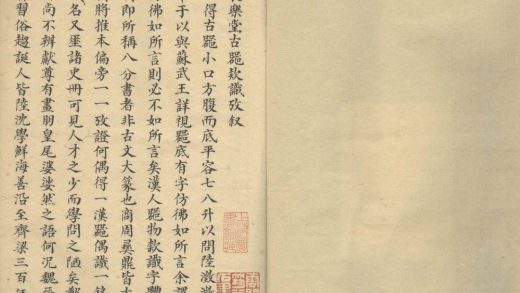 樂堂古器款識攷叙
得古器小口方腹而底平容七八升以問陸澂
于以與蘇武王詳視器底有字仿佛如所言余謂
佛如所言則必不如所言矣漢人器物款識字體
即所稱八分書者非古文大篆也商周彝鼎皆古
將推本偏旁一一攷證何偶得一漢器偶識一銘
名又垩諸史冊可見人才之少而學問之陋矣鄭
尚不辨獻尊有畫朙皇尾婆娑然之語何況魏晉
習俗趨誕人皆陸沈學鮮海善沿至齊梁三百